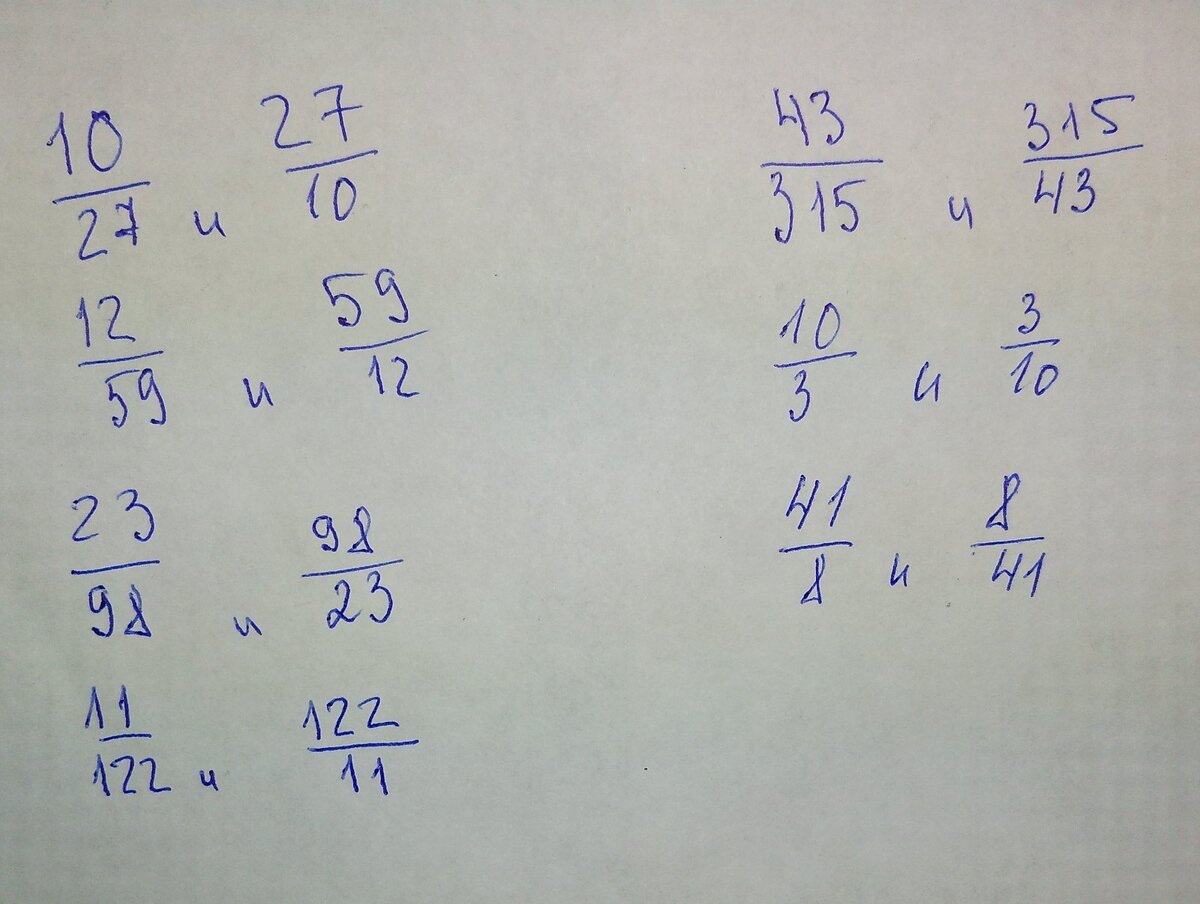 10/27 и 27/10
12/59 и 59/12
23/98 и 98/23
11/122 и 122/11
43/315 и 315/43
10/3 и 3/10
41/8 и 8/41